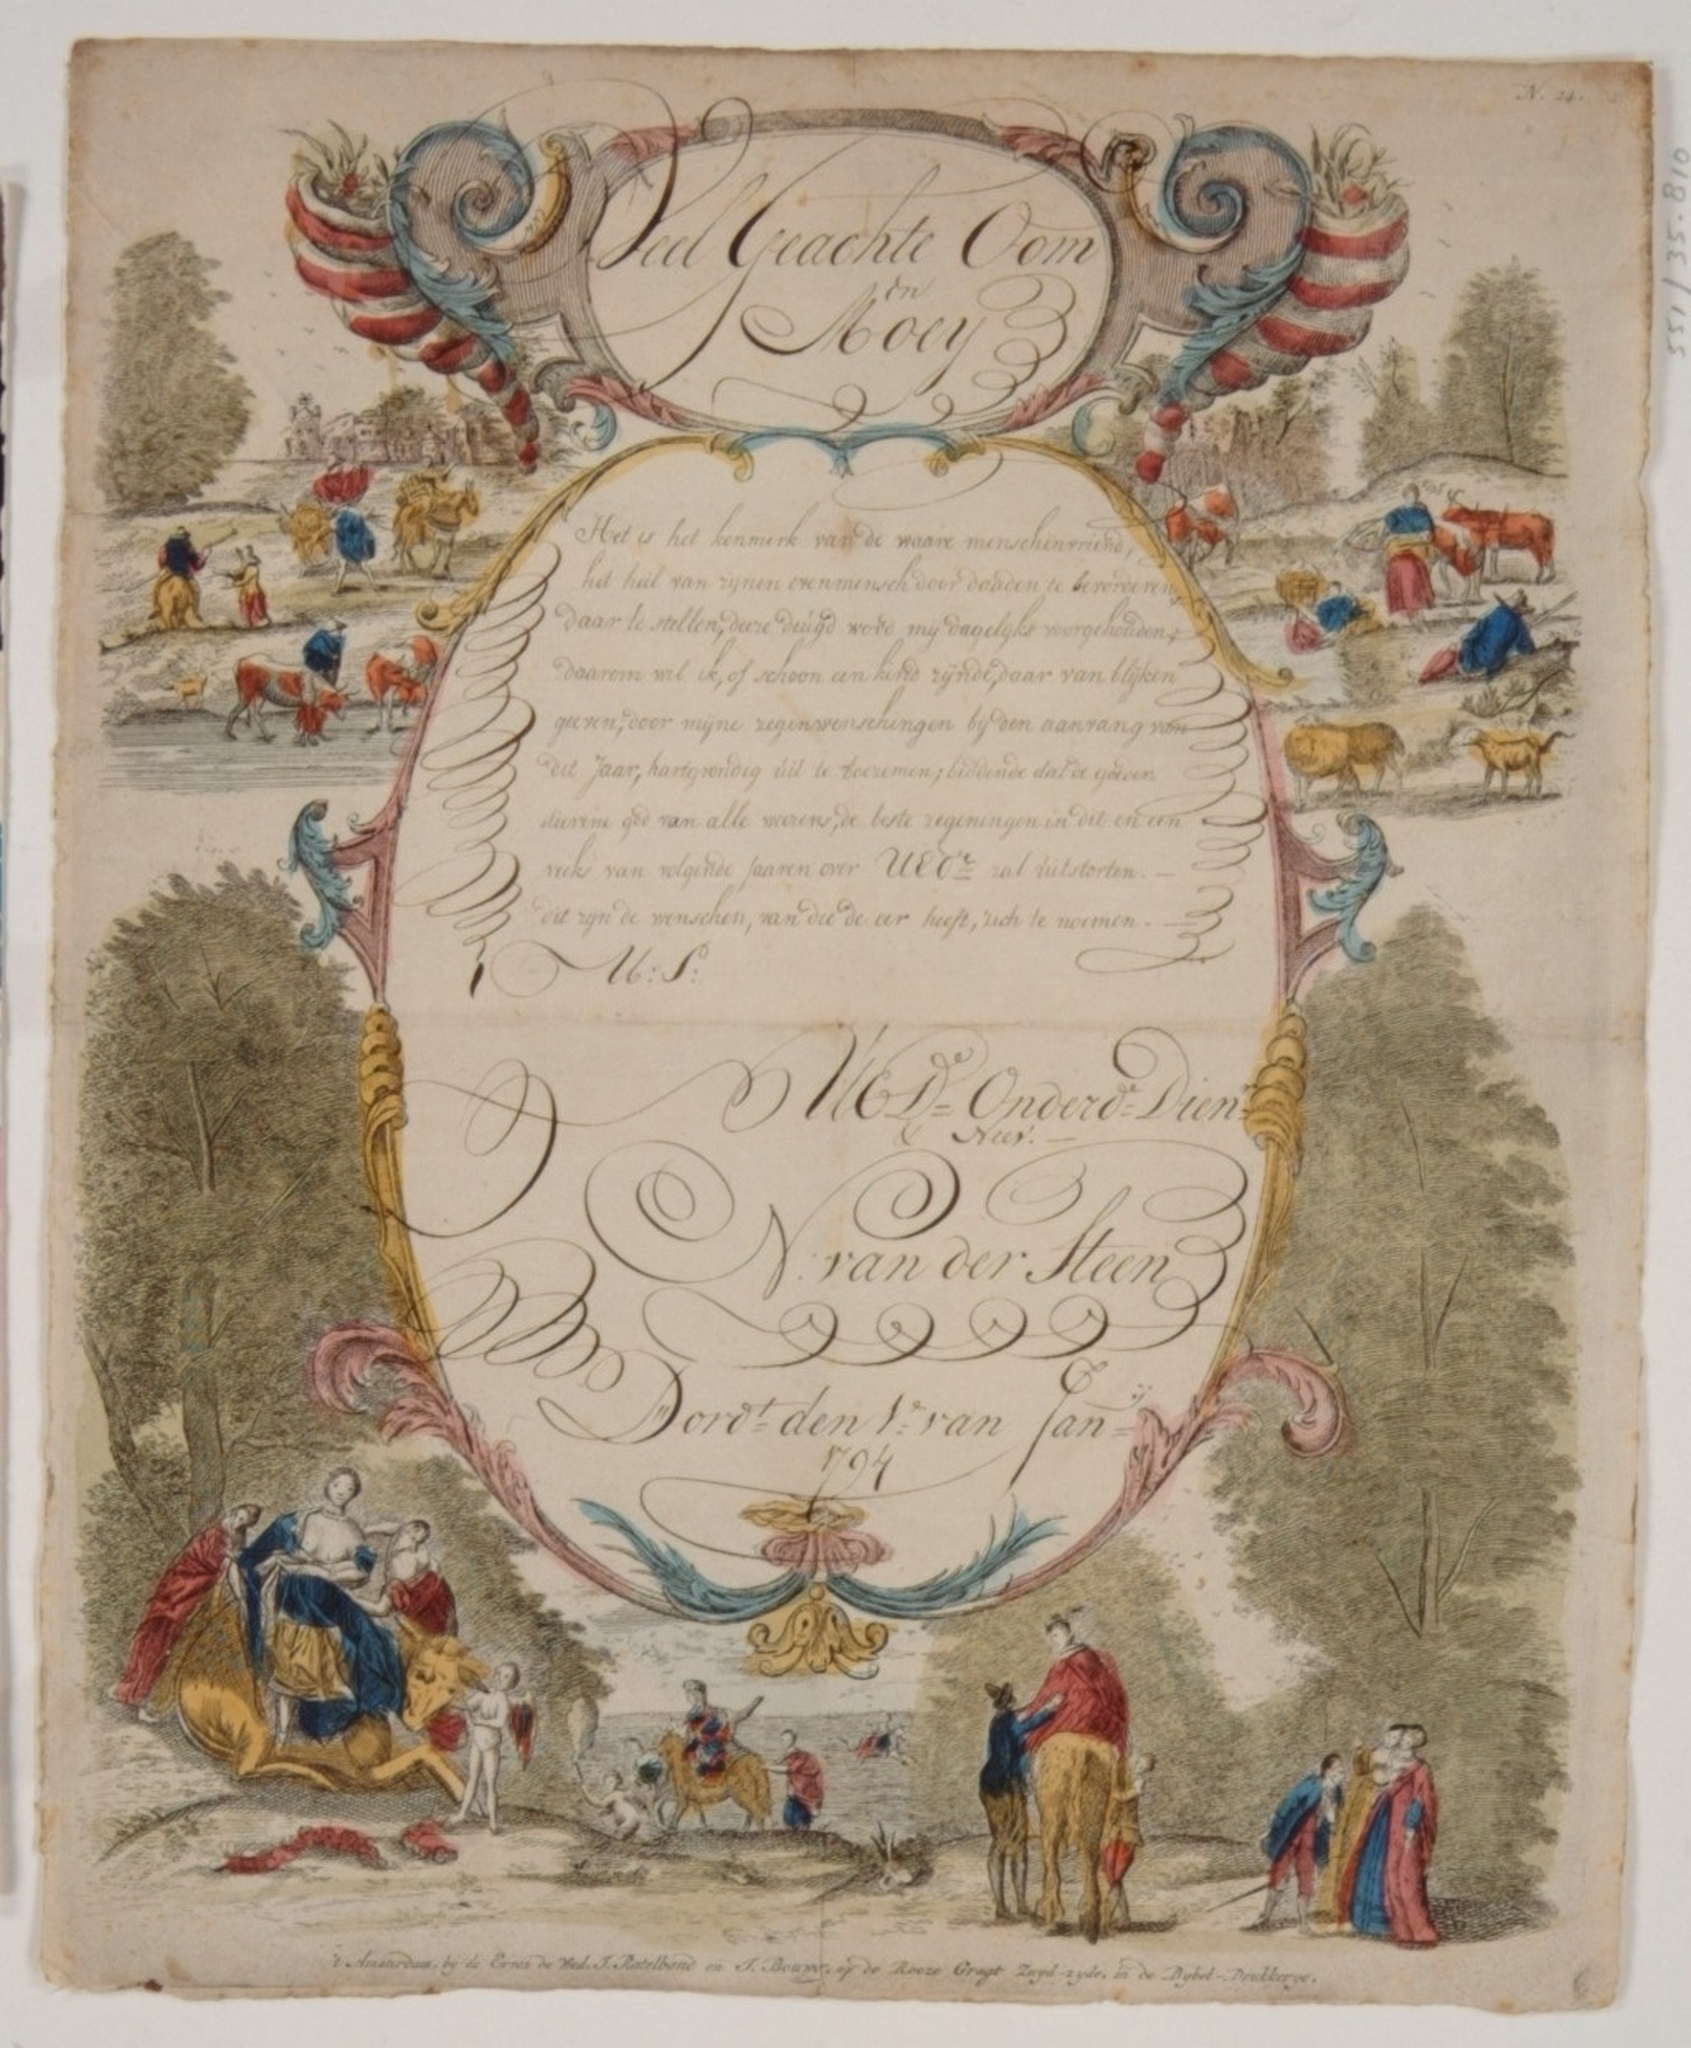 N. 24.
Veel Geachte Oom
en
Moey
Het is het kenmerk van de waare menschenvriend,
het heil van zijnen evenmensch door daaden te bevorderen
daar te stellen, deeze deugd word mij dagelijks voorgehouden;
daarom wil ik, of schoon een kind zijnde, daar van blijken
geeven, door mijne zegenwenschingen bij den aanvang van
dit Jaar, hartgrondig uit te boezemen; biddende dat de goeden
god van alle weezens, de beste zegeningen in dit en een
reeks van volgende Jaaren over UEde zal uitstorten. —
dit zijn de wenschen, van die de eer heeft, zich te noemen. —
M: S:
UEDe Onderde Dienr
& Neev. —
N. van der Steen
Dordt den 1e van Janij
1794
't Amsterdam, by de Erven de Wed. J. Ratelband en J. Bouwer, op de Rooze Gragt Zuyd-zyde, in de Bybel-Drukkerye.
551/35.810